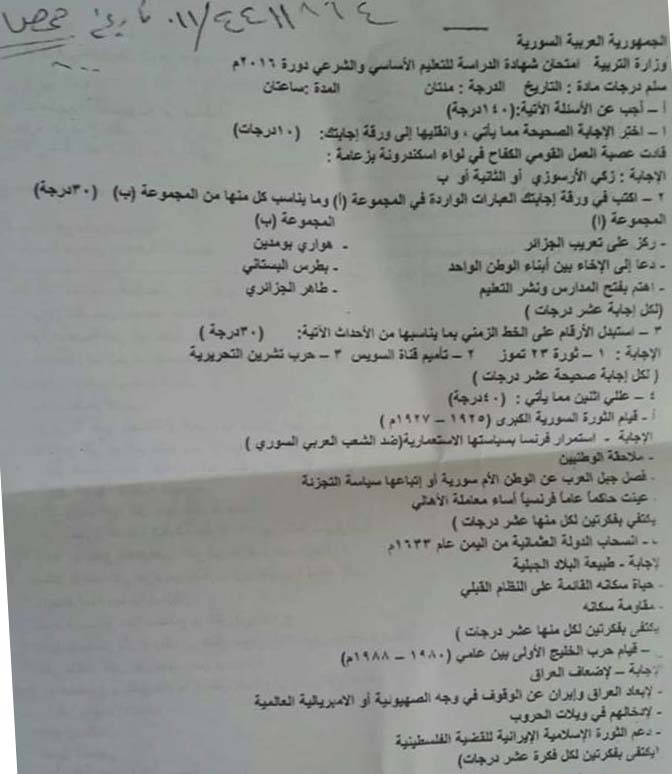 ٠١١/٤٤١١٨٦٤ تاريخ حمص
٨٠٠
الجمهورية العربية السورية
وزارة التربية امتحان شهادة الدراسة للتعليم الأساسي والشرعي دورة ٢٠١٦م
سلم درجات مادة : التاريخ الدرجة : مئتان المدة :ساعتان
أ – أجب عن الأسئلة الآتية:(١٤٠درجة)
١ – اختر الإجابة الصحيحة مما يأتي ، وانقليها إلى ورقة إجابتك: (١٠درجات)
قادت عصبة العمل القومي الكفاح في لواء اسكندرونة بزعامة :
الإجابة : زكي الأرسوزي أو الثانية أو ب
٢ – اكتب في ورقة إجابتك العبارات الواردة في المجموعة (أ) وما يناسب كل منها من المجموعة (ب) (٣٠درجة)
المجموعة (ا) المجموعة (ب)
- ركز على تعريب الجزائر - هواري بومدين
- دعا إلى الإخاء بين أبناء الوطن الواحد - بطرس البستاني
- اهتم بفتح المدارس ونشر التعليم - طاهر الجزائري
(لكل إجابة عشر درجات )
٣ – استبدل الأرقام على الخط الزمني بما يناسبها من الأحداث الآتية: (٣٠درجة )
الإجابة : ١ – ثورة ٢٣ تموز ٢ – تأميم قناة السويس ٣ – حرب تشرين التحريرية
( لكل إجابة صحيحة عشر درجات )
٤ – عللي اثنين مما يأتي : (٤٠درجة)
أ - قيام الثورة السورية الكبرى (١٩٢٥ – ١٩٢٧م )
الإجابة - استمرار فرنسا بسياستها الاستعمارية(ضد الشعب العربي السوري )
- ملاحقة الوطنيين
- فصل جبل العرب عن الوطن الأم سورية أو إتباعها سياسة التجزئة
- عينت حاكماً عاماً فرنسياً أساء معاملة الأهالي
يكتفي بفكرتين لكل منها عشر درجات )
- انسحاب الدولة العثمانية من اليمن عام ١٦٣٣م
لإجابة - طبيعة البلاد الجبلية
- حياة سكانه القائمة على النظام القبلي
- مقاومة سكانه
يكتفى بفكرتين لكل منها عشر درجات )
– قيام حرب الخليج الأولى بين عامي (١٩٨٠ – ١٩٨٨م)
لإجابة – لإضعاف العراق
- لإبعاد العراق وإيران عن الوقوف في وجه الصهيونية أو الامبريالية العالمية
- لإدخالهم في ويلات الحروب
- دعم الثورة الإسلامية الإيرانية للقضية الفلسطينية
(يكتفى بفكرتين لكل فكرة عشر درجات)